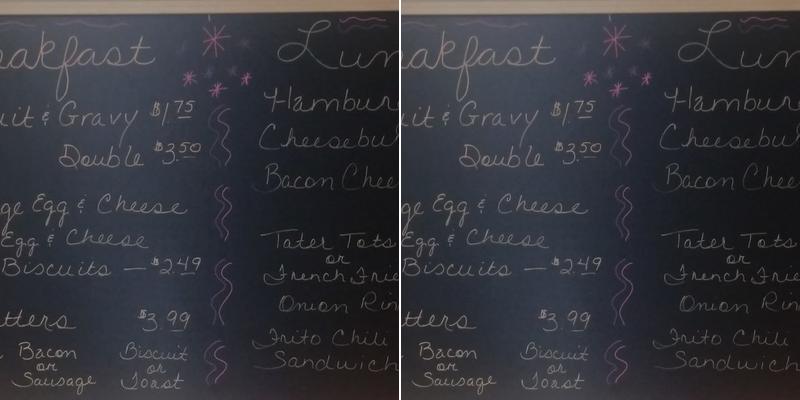 akfast
uit & Gravy $1.75
Double $3.50
ge Egg & Cheese
Egg & Cheese
Biscuits — $2.49
tters $3.99
Bacon
or
Sausage
Biscuit
or
Toast
Lun
Hambur
Cheesebu
Bacon Chee
Tater Tots
or
French Frie
Onion Rin
Frito Chili
Sandwich
akfast
uit & Gravy $1.75
Double $3.50
ge Egg & Cheese
Egg & Cheese
Biscuits — $2.49
tters $3.99
Bacon
or
Sausage
Biscuit
or
Toast
Lun
Hambur
Cheesebu
Bacon Chee
Tater Tots
or
French Frie
Onion Rin
Frito Chili
Sandwich